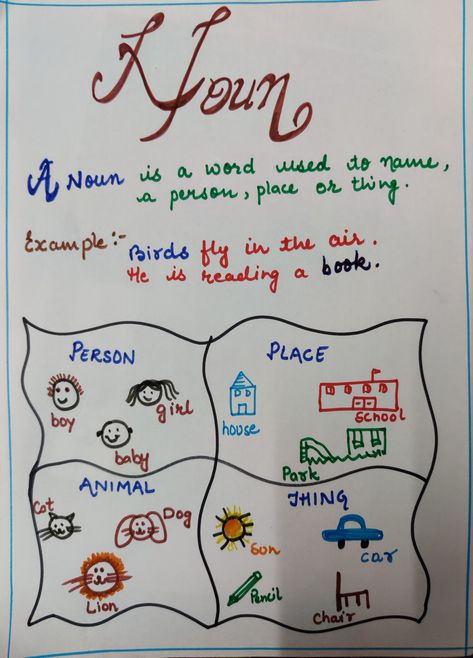 Noun
A Noun is a word used to name,
a person, place or thing.
Example:- Birds fly in the air.
He is reading a book.
PERSON
boy
girl
baby
PLACE
house
School
Park
ANIMAL
Cat
Dog
Lion
THING
Sun
Car
Pencil
Chair